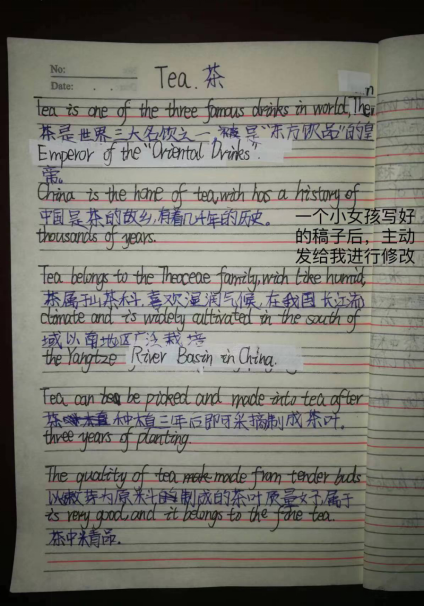 No:
Date:
Tea. 茶
n
tea is one of the three famous drinks in world, The
茶是世界三大名饮之一 被 是"东方饮品"的皇
Emperor of the "Oriental Drinks".
帝。
China is the home of tea, with has a history of
中国是茶的故乡, 有着几千年的历史。
thousands of years.
一个小女孩写好
的稿子后，主动
发给我进行修改
Tea belongs to the Theaceae family, with like humid,
茶属于山茶科, 喜欢湿润气候, 在我国长江流
climate and is widely cultivated in the south of
域以南地区广泛栽培
the Yangtze River Basin in China.
Tea can be picked and made into tea after
茶 种植三年后即可采摘制成茶叶。
three years of planting.
The quality of tea make made from tender buds
以嫩芽为原料 制成的茶叶质量好, 属于
is very good, and it belongs to the fine tea.
茶中精品.